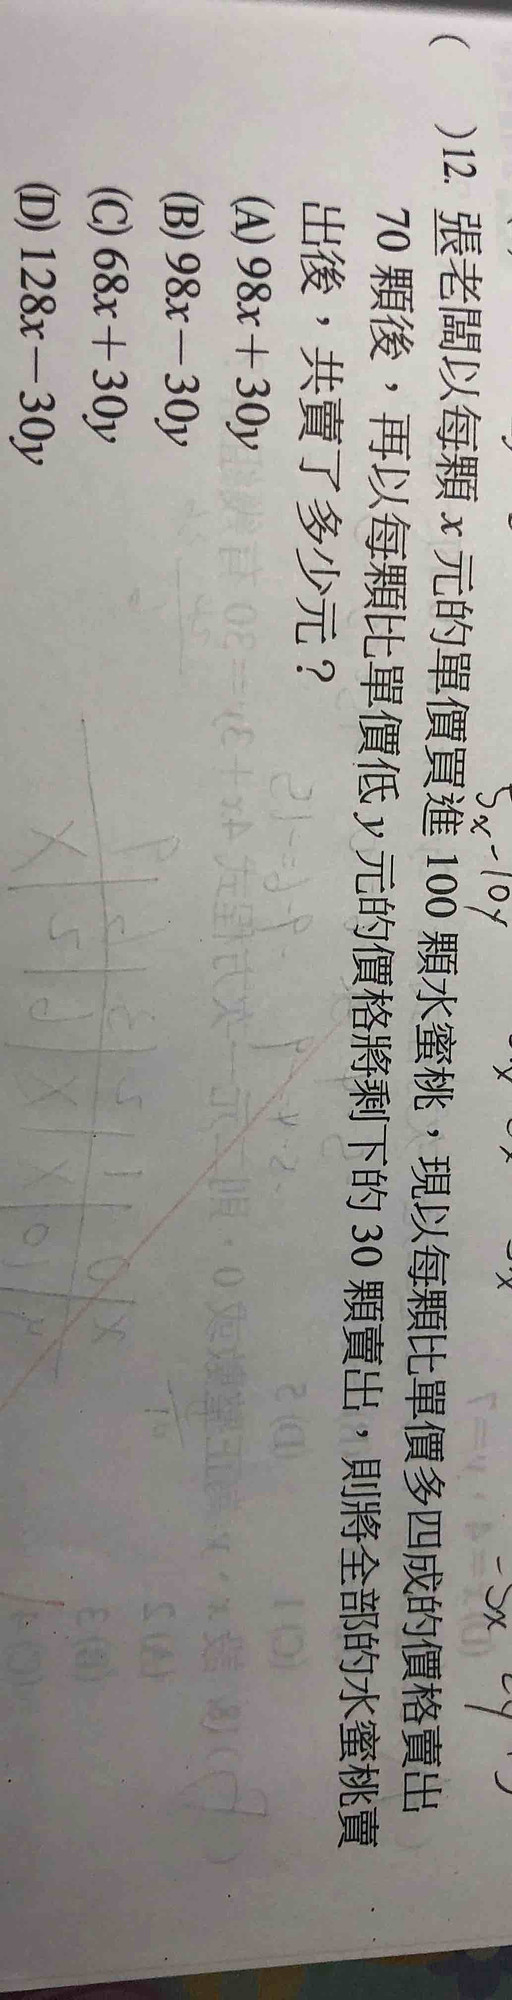 5x-10y
( )12. 張老闆以每顆 x 元的單價買進 100 顆水蜜桃，現以每顆比單價多四成的價格賣出
70 顆後，再以每顆比單價低 y 元的價格將剩下的 30 顆賣出，則將全部的水蜜桃賣
出後，共賣了多少元？
(A) 98x＋30y
(B) 98x－30y
(C) 68x＋30y
(D) 128x－30y